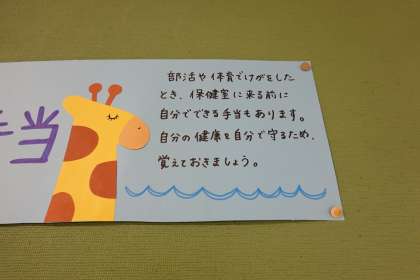 手当
部活や体育でけがをした
とき、保健室に来る前に
自分でできる手当もあります。
自分の健康を自分で守るため、
覚えておきましょう。